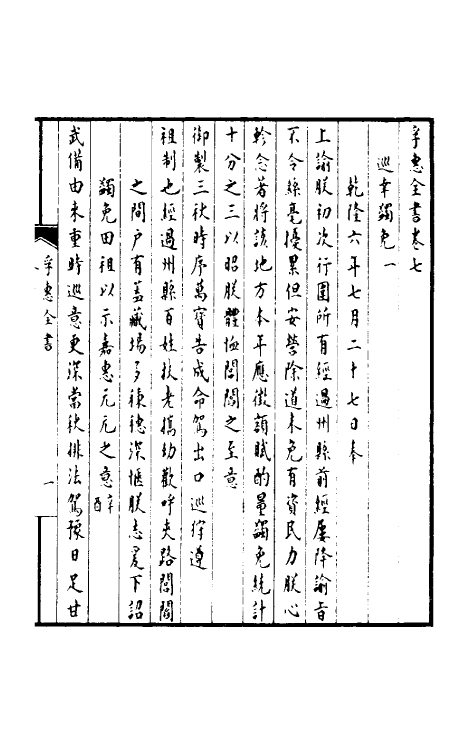 孚惠全書卷七
巡幸蠲免一
乾隆六年七月二十七日奉
上諭朕初次行圍所有經過州縣前經屢降諭旨
不令絲毫擾累但安營除道未免有資民力朕心
軫念著將該地方本年應徵額賦酌量蠲免統計
十分之三以昭朕體恤閭閻之至意
御製三秋時序萬寶告成命駕出口巡狩遵
祖制也經過州縣百姓扶老攜幼歡呼夾路閭閻
之間戶有蓋藏場多稑穗深愜朕志爰下詔
蠲免田租以示嘉惠元元之意辛酉
武備由來重時巡意更深當秋排法駕豫日足甘
孚惠全書
一